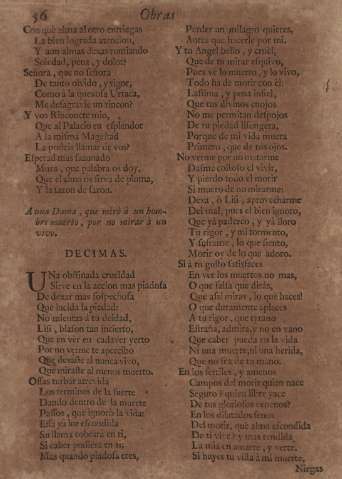 36 Obras
Con què alma al otro entriegas
La bien lograda atencion,
Y aun almas dexas rumiando
Soledad, pena, y dolor?
Señora, que no señora
De tanto olvido, y rigor,
Como à la quexosa Urraca,
Me desagravie un rincon?
Y vos Rinconete mio,
Que al Palacio en esplendor
A la misma Magestad
La podeis llamar de vos?
Esperad mas sazonado
Mora, que palabra os doy,
Que el alma os sirva de pluma,
Y la razon de
A una Dama, que mirò à un hom-
bre muerto, por no mirar à un
vivo.
DECIMAS.
UNa obstinada crueldad
Sirve en la accion mas piadosa
De dexar mas sospechosa
Que lucida la piedad:
No mientas à tu deidad,
Lisi, blason tan incierto,
Que en ver en cadaver yerto
Por no verme te apercibo
Que dexaste al nunca vivo,
Que miraste al menos muerto.
Ossas turbar atrevida
Los terminos de la suerte
Dando dentro de la muerte
Passos, que ignorò la vida:
Essa yà luz escondida
Su llama cobrarà en ti,
Si caber pudiera en tu
Mas quando piadosa eres,
Perder un milagro quieres,
Antes que hacerle por mi.
Y tu Angel bello, y cruel,
Que de tu mirar esquivo,
Pues ve lo muerto, y lo vivo,
Todo ha de morir con èl:
Lastima, y pena infiel,
Que tus divinos enojos
No me permitan despojos
De tu piedad lisongera,
Porque de mi vida muera
Primero, que de tus ojos.
No verme por no matarme
Dasme colloso el vivir,
Y pierdo todo el morir
Si muero de no mirarme:
Dexa, ò Lisi, aprovecharme
Del mal, pues el bien ignoro,
Que yà padezco, y yà lloro
Tu rigor, y mi tormento,
Y sufrirte, lo que siento,
Morir oy de lo que adoro.
Si à tu gusto satisfaces
En ver los muertos no mas,
O que falta que diràs,
Que assi miras, lo que haces!
O que duramente aplaces
A tu rigor, que tirano
Estraña, admira, y no en vano
Que caber pueda en la vida
Ni una muerte, ni una herida,
Que no sea de tu mano.
En los fertiles, y amenos
Campos del morir quien nace
Seguro? quien libre yace
De tus gloriosos venenos?
En los dilatados senos
Del morir, què alma escondida
De ti vive? y mas rendida
La mia en muerte, y verte.
Si huyes tu vista à mi muerte,
Niegas